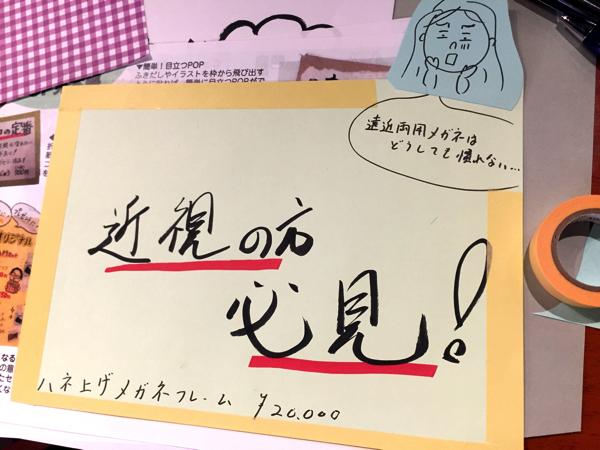 ▼簡単！目立つPOP
ふきだしやイラストを枠から飛び出す
遠近両用メガネは
どうしても慣れない…
近視の方
必見!
ハネ上げメガネフレーム ¥20.000
の定番
オリジナル